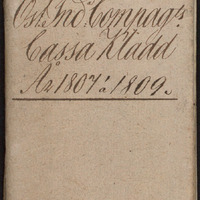 Ost Ind. Compag:s
Cassa Kladd
År 1807 à 1809.